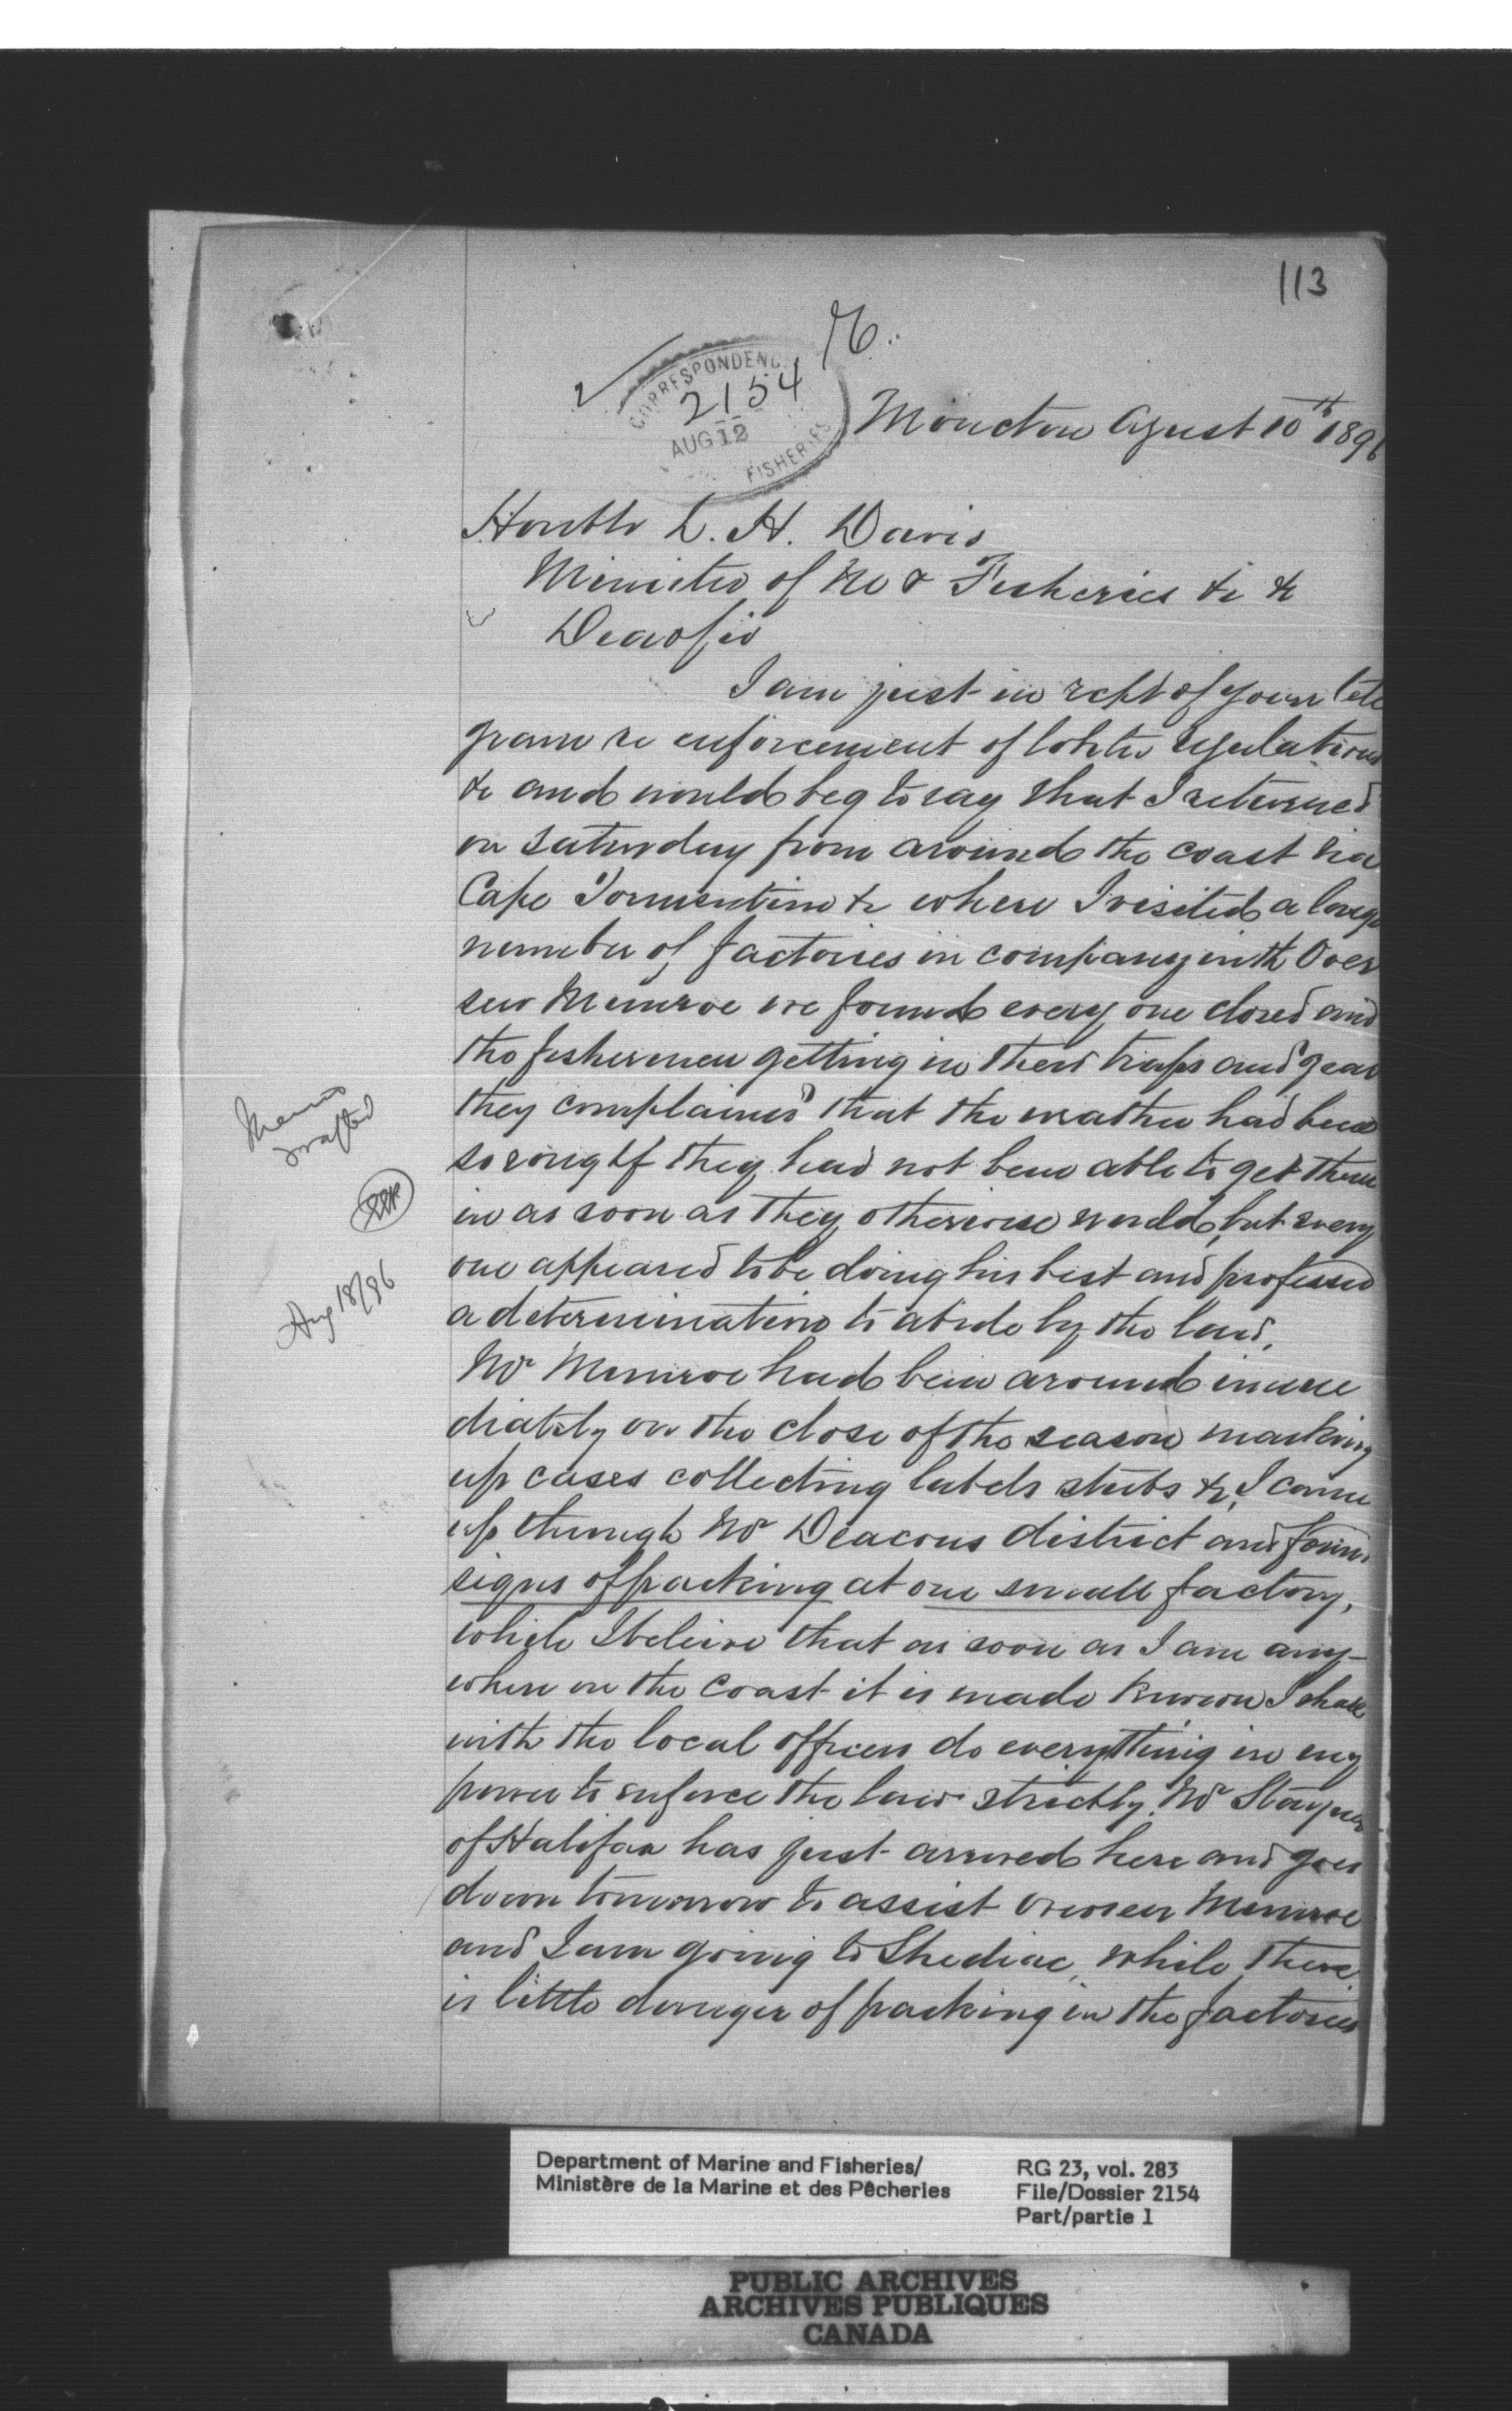 113
76
CORRESPONDENC
2154
AUG 12
FISHERIES
Moncton Agust 10th 1896
Honble L. H. Davis
Minister of M & Fisheries &c &c
Dear Sir
I am just in rcpt of your tele
gram re enforcement of lobster regulations
&c and would beg to say that I returned
on Saturday from around the coast via
Cape Tormentine &c where I visited a large
number of factories in company with Over
seer Munroe we found every one closed and
the fishermen getting in their traps and gear
they complained that the weather had been
so rough they had not been able to get them
in as soon as they otherwise would, but every
one appeared to be doing his best and professed
a determination to abide by the law.
Mr Munroe had been around imme
diately on the close of the season marking
up cases collecting labels stubs &c, I came
up through Mr Deacons district and found
signs of packing at one small factory,
while I beleive that as soon as I am any-
where on the coast it is made known I shall
with the local officers do everything in my
power to enforce the law strictly. Mr Stayner
of Halifax has just arrived here and goes
down tomorrow to assist overseer Munroe
and I am going to Shediac, while there
is little danger of packing in the factories
Memo
drafted
Aug 18/96
Department of Marine and Fisheries/
Ministère de la Marine et des Pêcheries
RG 23, vol. 283
File/Dossier 2154
Part/partie 1
PUBLIC ARCHIVES
ARCHIVES PUBLIQUES
CANADA